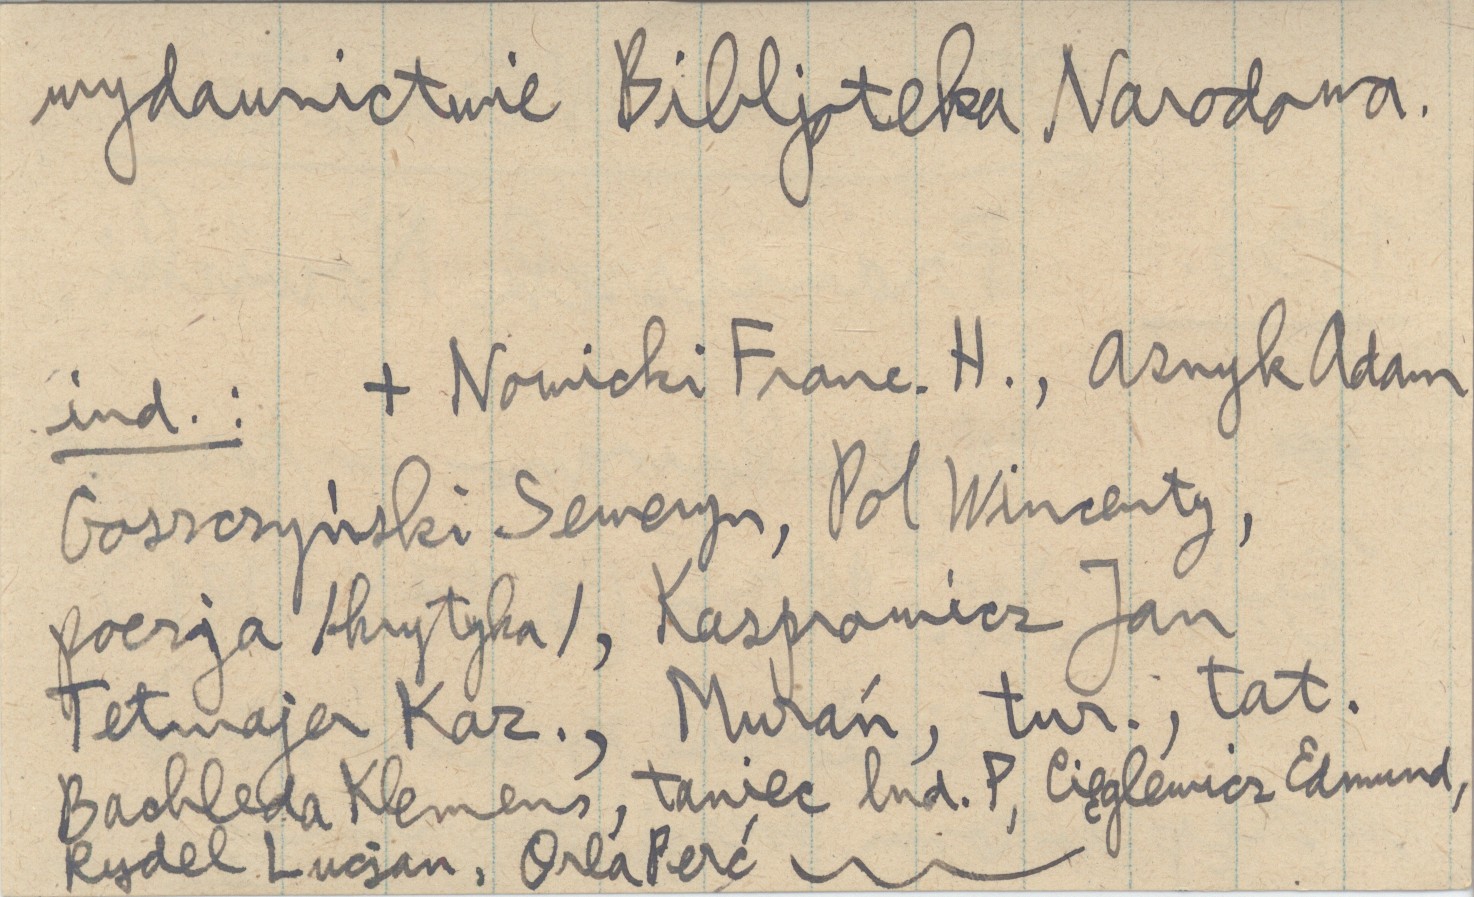 wydawnictwie Bibljoteka Narodowa.
ind.: + Nowicki Franc. H., Asnyk Adam
Goszczyński Seweryn, Pol Wincenty,
poezja /krytyka/, Kasprowicz Jan
Tetmajer Kaz., Murań, tur., tat.
Bachleda Klemens, taniec lud. P, Cięglewicz Edmund,
Rydel Lucjan, Orla Perć